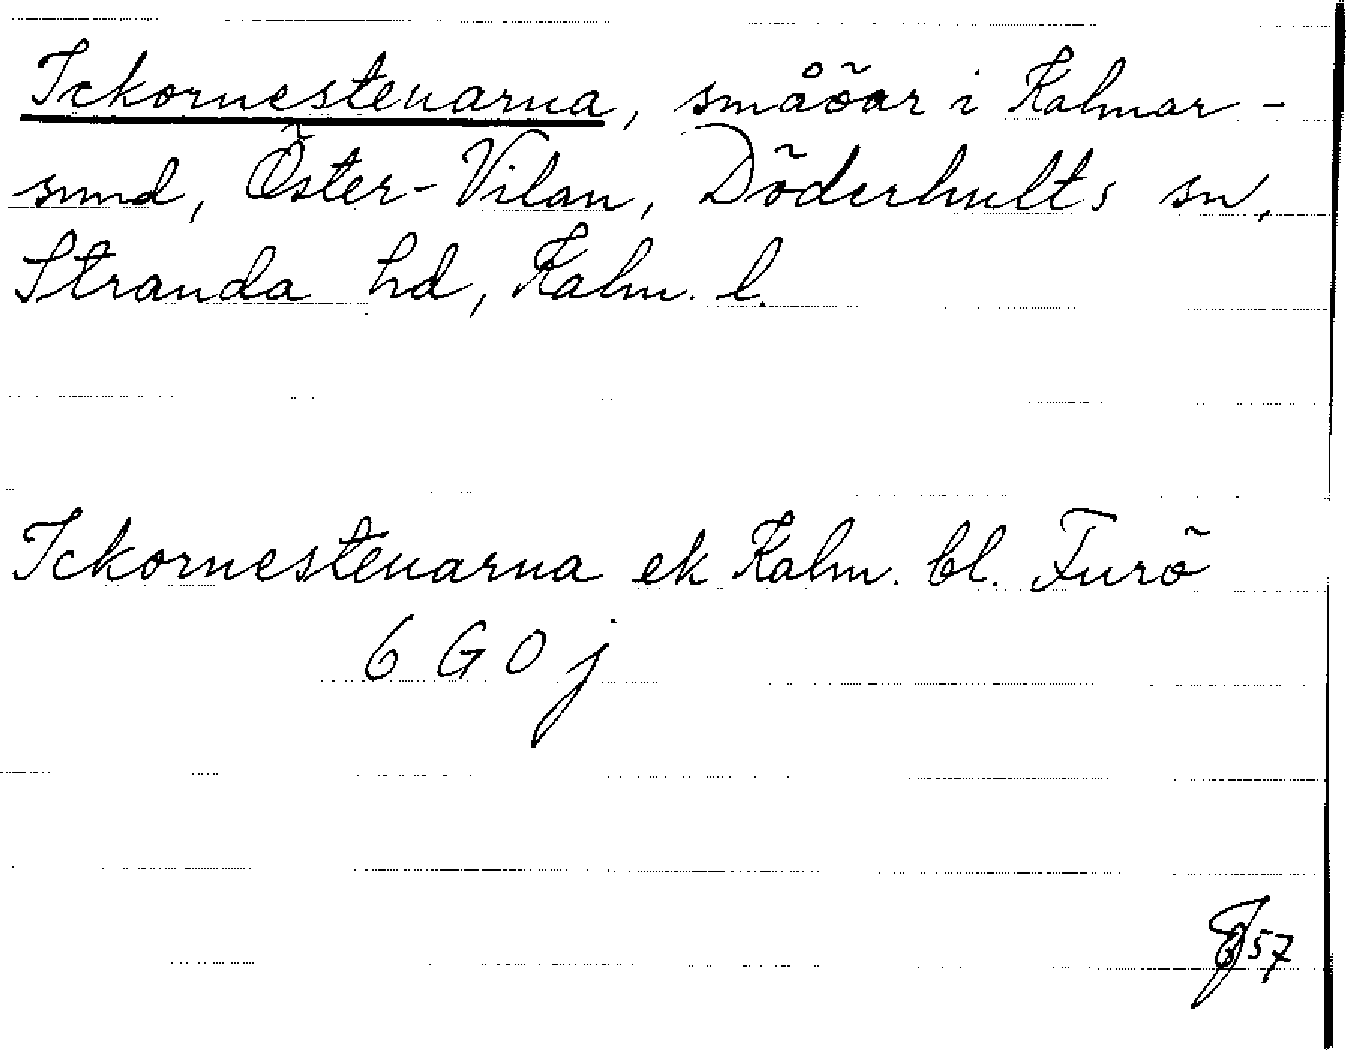 Ickornestenarna, småöar i Kalmar-
sund, Öster-Vilan, Döderhults sn,
Stranda hd, Kalm. l.
Ickornestenarna ek Kalm. bl. Furö
6 G O j
57